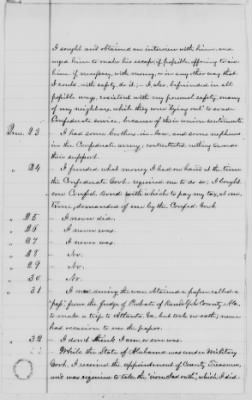 I sought and obtained an interview with him, and
urged him to make his escape if possible, offering to aid
him if necessary, with money, or in any other way that
I could with safety do it; — I, also, befriended in all
possible ways, consistent with my personal safety, many
of my neighbors while they were "lying out" to evade
Confederate service, because of their union sentiments.
Ques. 23 I had some brothers-in-law, and some nephews
in the Confederate army; contributed nothing towards
their support.
" 24 I funded what money I had on hand at the time
the Confederate Govt. required me to do so; I bought
one Confed. bond with which to pay my tax, at one
time, demanded of me by the Confed. Govt.
" 25 — I never did.
" 26 — I never was.
" 27 — I never was.
" 28 — No.
" 29 — No.
" 30 — No.
" 31 I once during the war obtained a paper called a
"pass" from the Judge of Probate of Randolph County Ala.
to make a trip to Atlanta Ga. but took no oath; never
had occasion to use the paper.
" 32 — I don't think I am or ever was.
While the State of Alabama was under Military
Govt. I received the appointment of County Treasurer,
and was required to take the "iron clad oath", which I did.